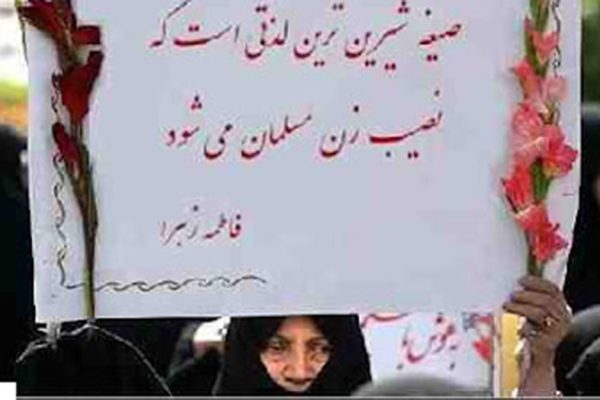 صیغه شیرین ترین لذتی است که
نصیب زن مسلمان می شود
فاطمه زهرا
به هوش با